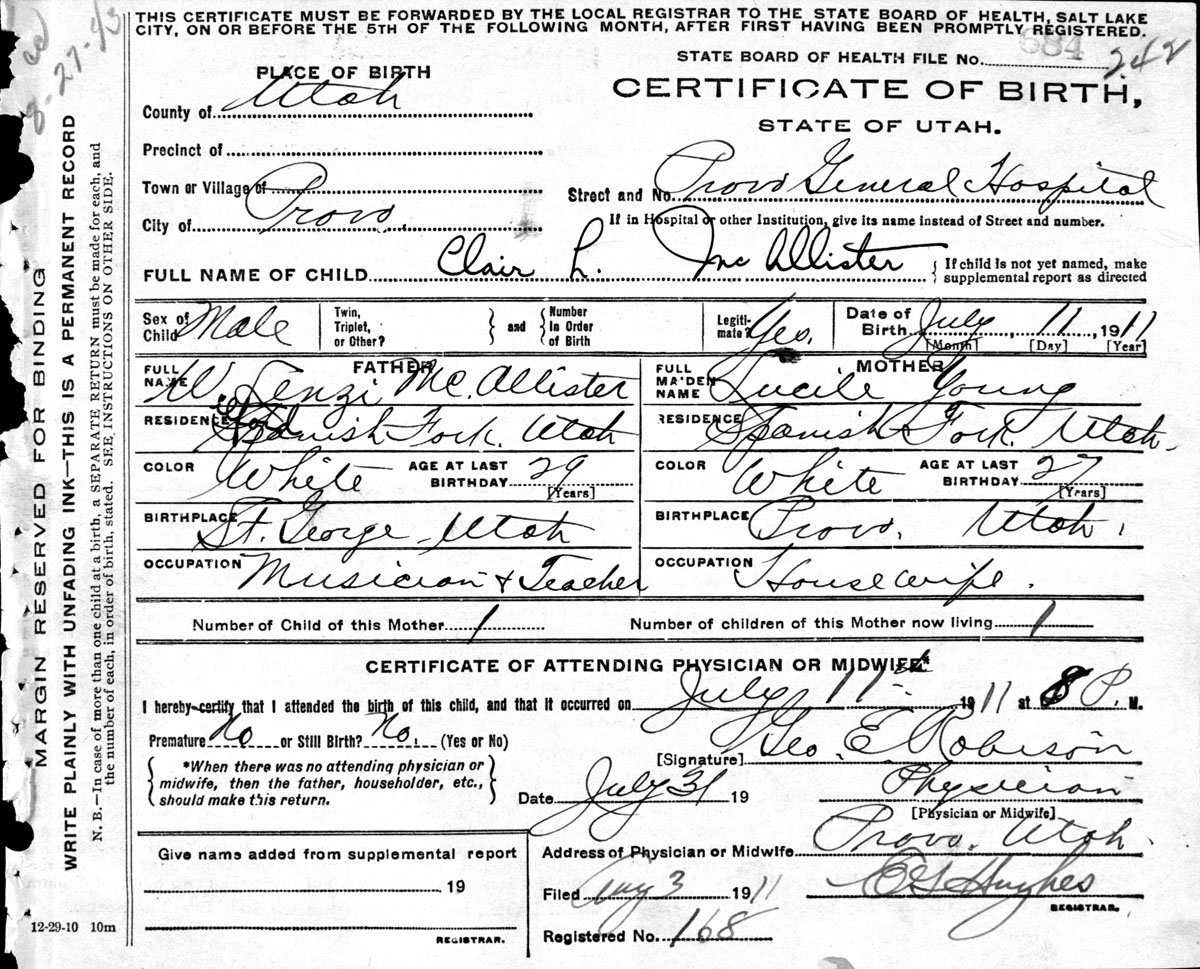 THIS CERTIFICATE MUST BE FORWARDED BY THE LOCAL REGISTRAR TO THE STATE BOARD OF HEALTH, SALT LAKE
CITY, ON OR BEFORE THE 5TH OF THE FOLLOWING MONTH, AFTER FIRST HAVING BEEN PROMPTLY REGISTERED.
684
STATE BOARD OF HEALTH FILE No. 242
PLACE OF BIRTH
CERTIFICATE OF BIRTH,
STATE OF UTAH.
County of Utah
Precinct of
Town or Village of
City of Provo.
Street and No. Provo General Hospital
If in Hospital or other Institution, give its name instead of Street and number.
FULL NAME OF CHILD Clair L. McAllister
If child is not yet named, make
supplemental report as directed
Sex of Child Male
Twin, Triplet, or Other?
and
Number In Order of Birth
Legiti- mate? Yes.
Date of Birth July, 11, 1911
[Month] [Day] [Year]
FATHER
FULL NAME W. Lenzi McAllister
RESIDENCE Spanish Fork. Utah
COLOR White AGE AT LAST BIRTHDAY 29
[Years]
BIRTHPLACE St. George Utah
OCCUPATION Musician & Teacher
MOTHER
FULL MAIDEN NAME Lucile Young
RESIDENCE Spanish Fork. Utah.
COLOR White AGE AT LAST BIRTHDAY 27
[Years]
BIRTHPLACE Provo. Utah.
OCCUPATION Housewife.
Number of Child of this Mother 1 Number of children of this Mother now living 1
CERTIFICATE OF ATTENDING PHYSICIAN OR MIDWIFE*
I hereby certify that I attended the birth of this child, and that it occurred on July 11th 1911 at 8 P. M.
Premature No or Still Birth? No. (Yes or No)
*When there was no attending physician or
midwife, then the father, householder, etc.,
should make this return.
[Signature] Geo. E. Robison
Date July 31 19
Physician
[Physician or Midwife]
Address of Physician or Midwife Provo. Utah.
Give name added from supplemental report
19
REGISTRAR.
Filed Aug 3 1911
Hughes
REGISTRAR.
Registered No. 168
12-29-10 10m
MARGIN RESERVED FOR BINDING
WRITE PLAINLY WITH UNFADING INK—THIS IS A PERMANENT RECORD
N. B.—In case of more than one child at a birth, a SEPARATE RETURN must be made for each, and
the number of each, in order of birth, stated. SEE INSTRUCTIONS ON OTHER SIDE.
8-27-43